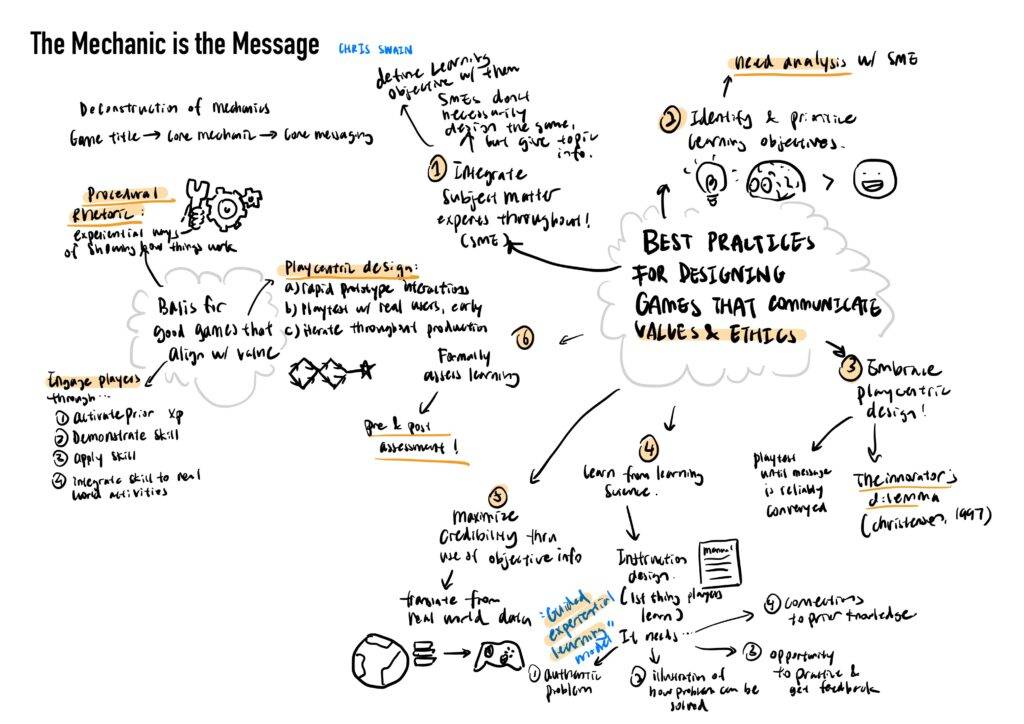 The Mechanic is the Message
CHRIS SWAIN
Deconstruction of mechanics
Game title → core mechanic → core messaging
Procedural
Rhetoric:
experiential ways
of showing how things work
Basis for
good games that
align w/ value
Playcentric design:
a) rapid prototype interactions
b) Playtest w/ real users, early
c) iterate throughout production
Engage players
through...
① Activate prior xp
② Demonstrate skill
③ Apply skill
④ integrate skill to real
world activities
BEST PRACTICES
FOR DESIGNING
GAMES THAT COMMUNICATE
VALUES & ETHICS
define learning
objective w/ them
SMEs don't
necessarily
design the game,
but give topic
info.
① Integrate
subject matter
experts throughout!
(SME)
need analysis w/ SME
② Identify & prioritize
learning objectives.
>
③ Embrace
playcentric
design!
playtest
until message
is reliably
conveyed
The innovator's
dilemma
(christensen, 1997)
④
Learn from learning
science.
Instruction
design.
(1st thing players
learn)
It needs...
manual
"Guided
experiential
learning"
model
① authentic
problem
② illustration of
how problem can be
solved
③ opportunity
to practice &
get feedback
④ connections
to prior knowledge
⑤
maximize
credibility thru
use of objective info
translate from
real world data
⑥
Formally
assess learning
pre & post
assessment!